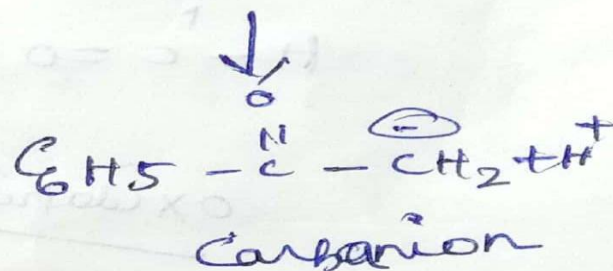 O
C6H5 - C - CH2 + H+
Carbanion